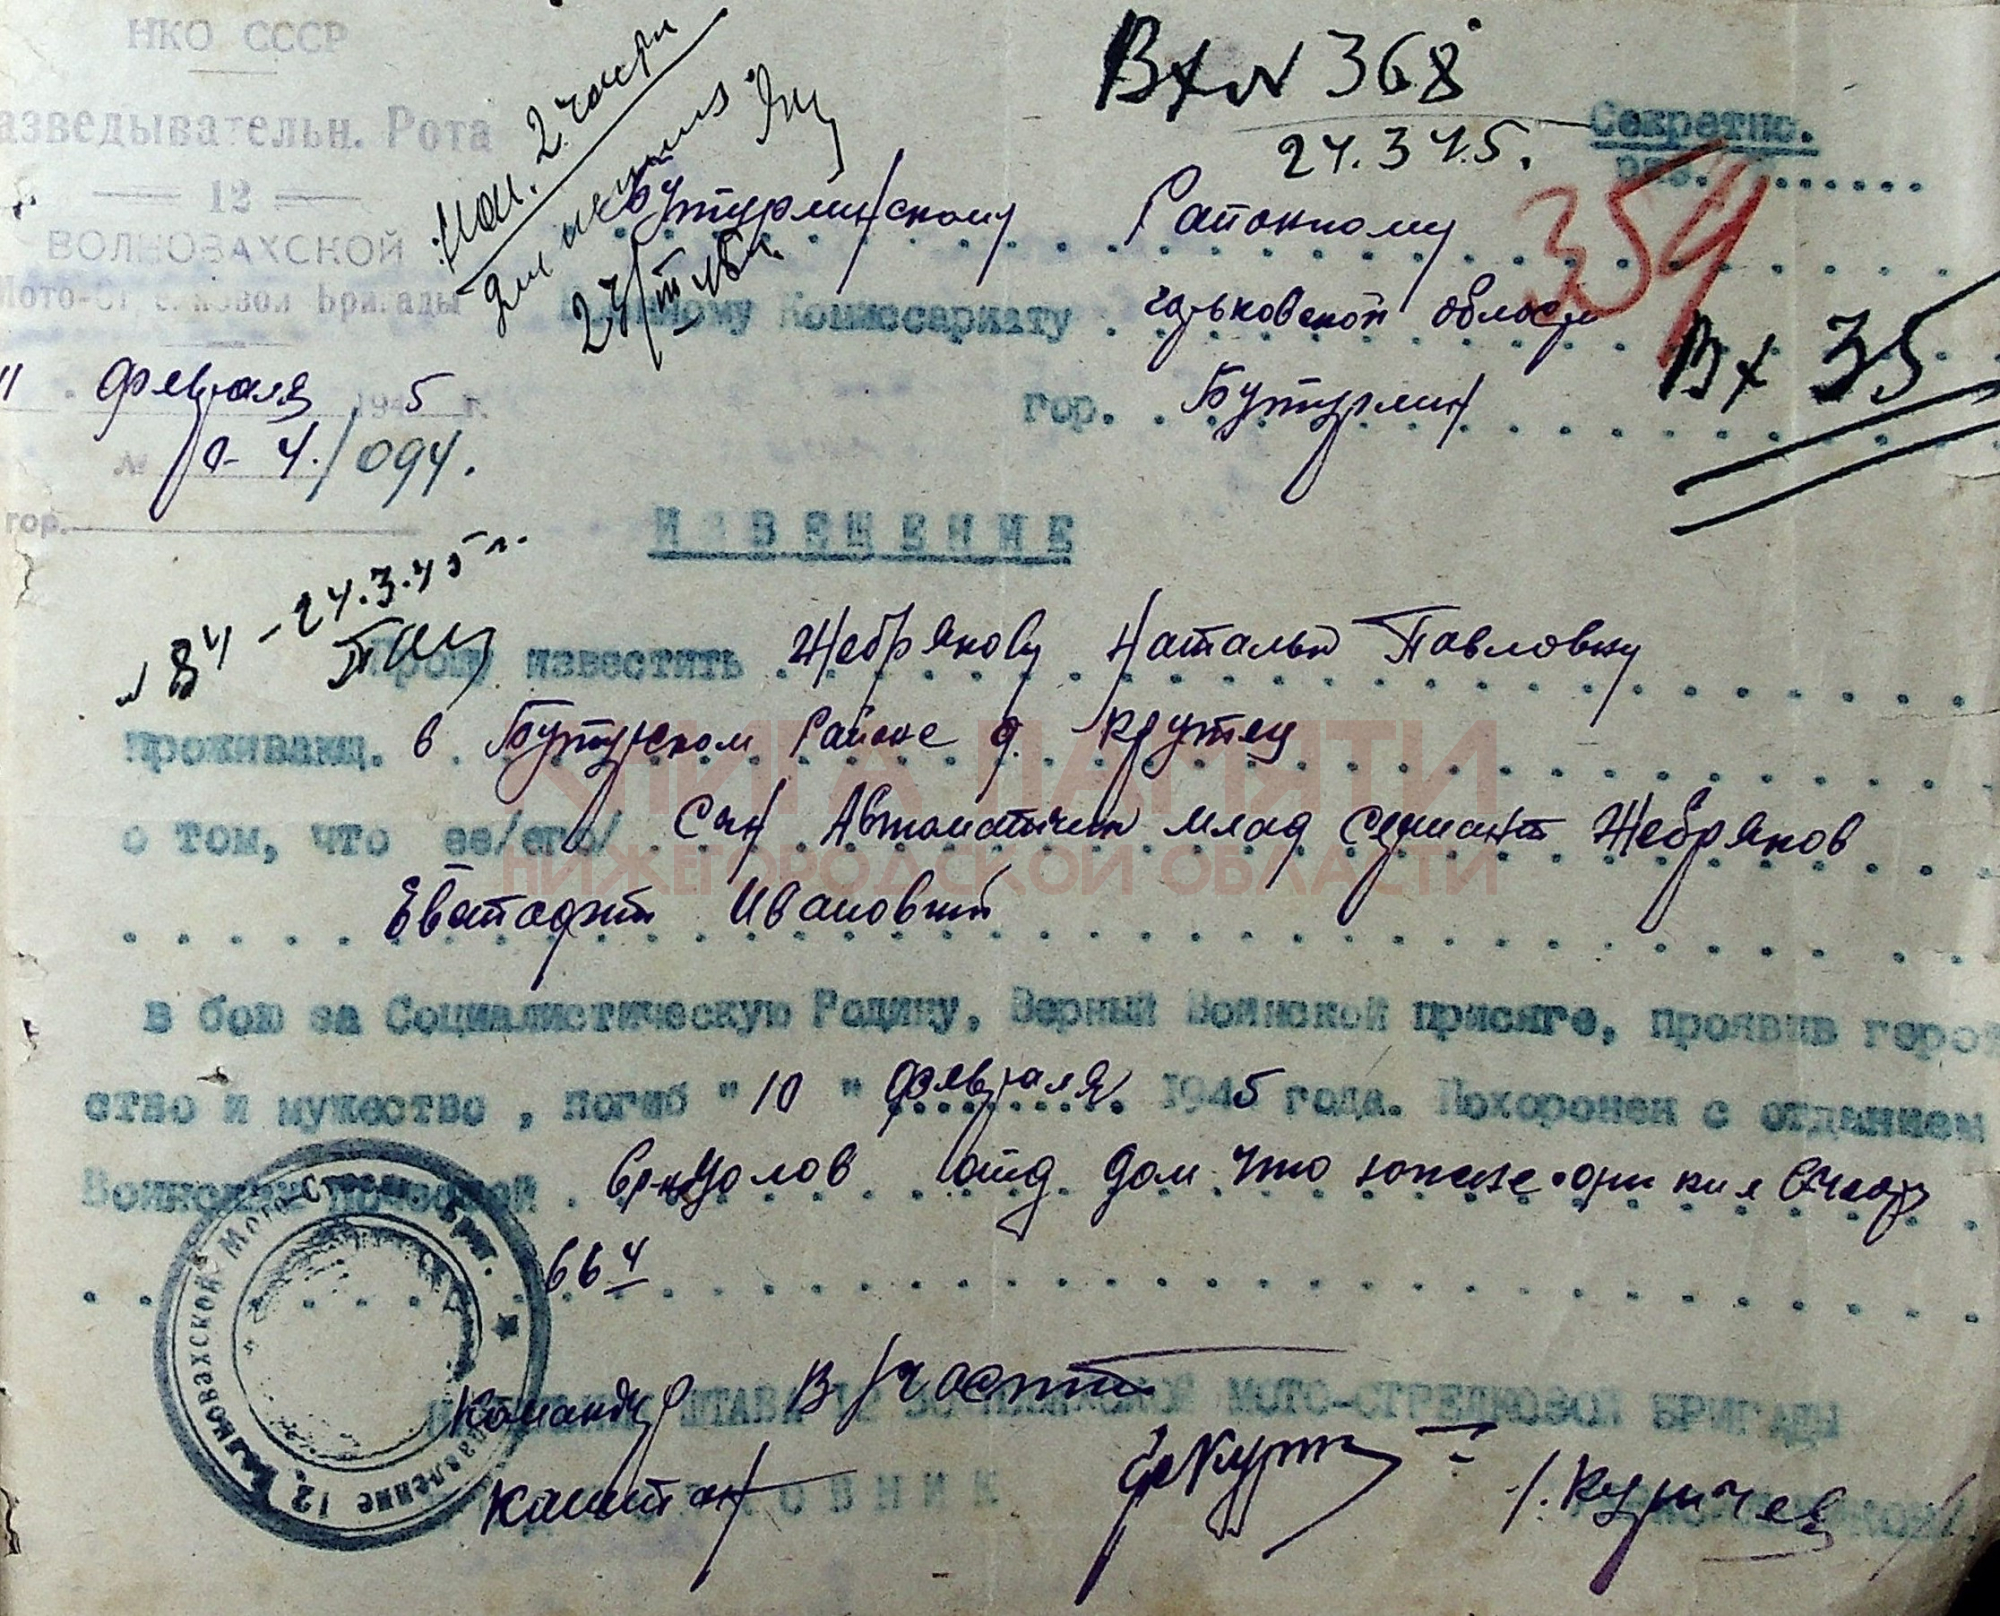 НКО СССР
азведывательн. Рота
12
ВОЛНОВАХСКОЙ
Мото-Стрелковой Бригады
11 февраля 1945 г.
№ 4./094.
гор.
Нач. 2 части
для
Вх N 368
24.3.45.
Секретно.
экз.
359
Вх 35
Бутурлинскому Районному
Военному Комиссариату Горьковской области
гор. Бутурлин
ИЗВЕЩЕНИЕ
N 84 - 24.3.45 г.
Прошу известить Жебрякову Наталью Павловну
проживающ. в Бутурском Районе д. Крутец
о том, что ее/его/ Сын Автоматчик млад Сержант Жебряков
Евстафий Иванович
в бою за Социалистическую Родину, Верный Воинской присяге, проявив герой
ство и мужество, погиб "10" февраля 1945 года. Похоронен с отданием
Воинских почестей. отд дом что южнее
664
КНИГА ПАМЯТИ
НИЖЕГОРОДСКОЙ ОБЛАСТИ
Командир В/части
ШТАБА 12 ВОЛНОВАХСКОЙ МОТО-СТРЕЛКОВОЙ БРИГАДЫ
Капитан
/. Куричев
Управление 12 Волновахской Мото-Стрелк. Бриг.